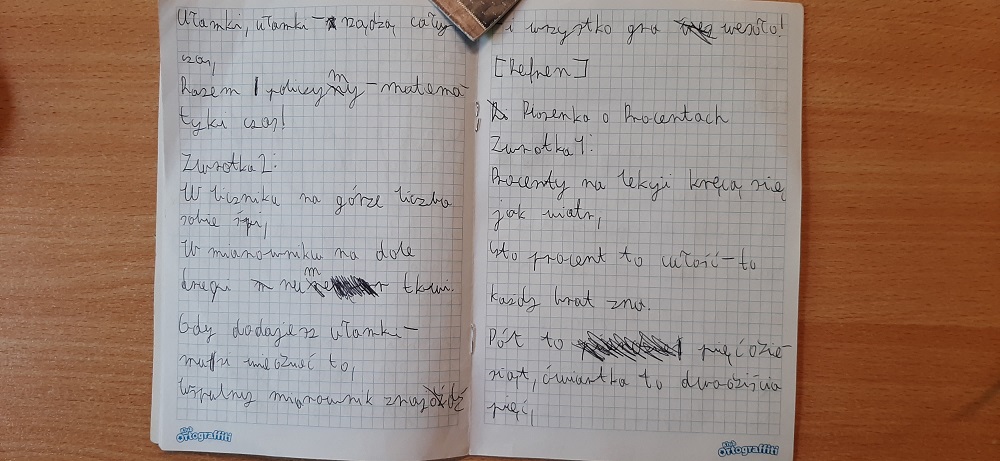 Ułamki, ułamki - rządzą cały
czas,
Razem policzymy - matema
tyki czas!
Zwrotka 2:
W liczniku na górze liczba
sobie śpi,
W mianowniku na dole
drugi numer tkwi.
Gdy dodajesz ułamki -
musi umieć to,
Wspulny mianownik znajdź
Klub Ortograffiti
i wszystko gra wesoło!
[Refren]
Piosenka o Procentach
Zwrotka 1:
Procenty na lekcji kręcą się
jak wiatr,
Sto procent to całość - to
każdy brat zna.
Pół to pięćdzie
siąt, ćwiartka to dwadziścia
pięć,
Klub Ortograffiti